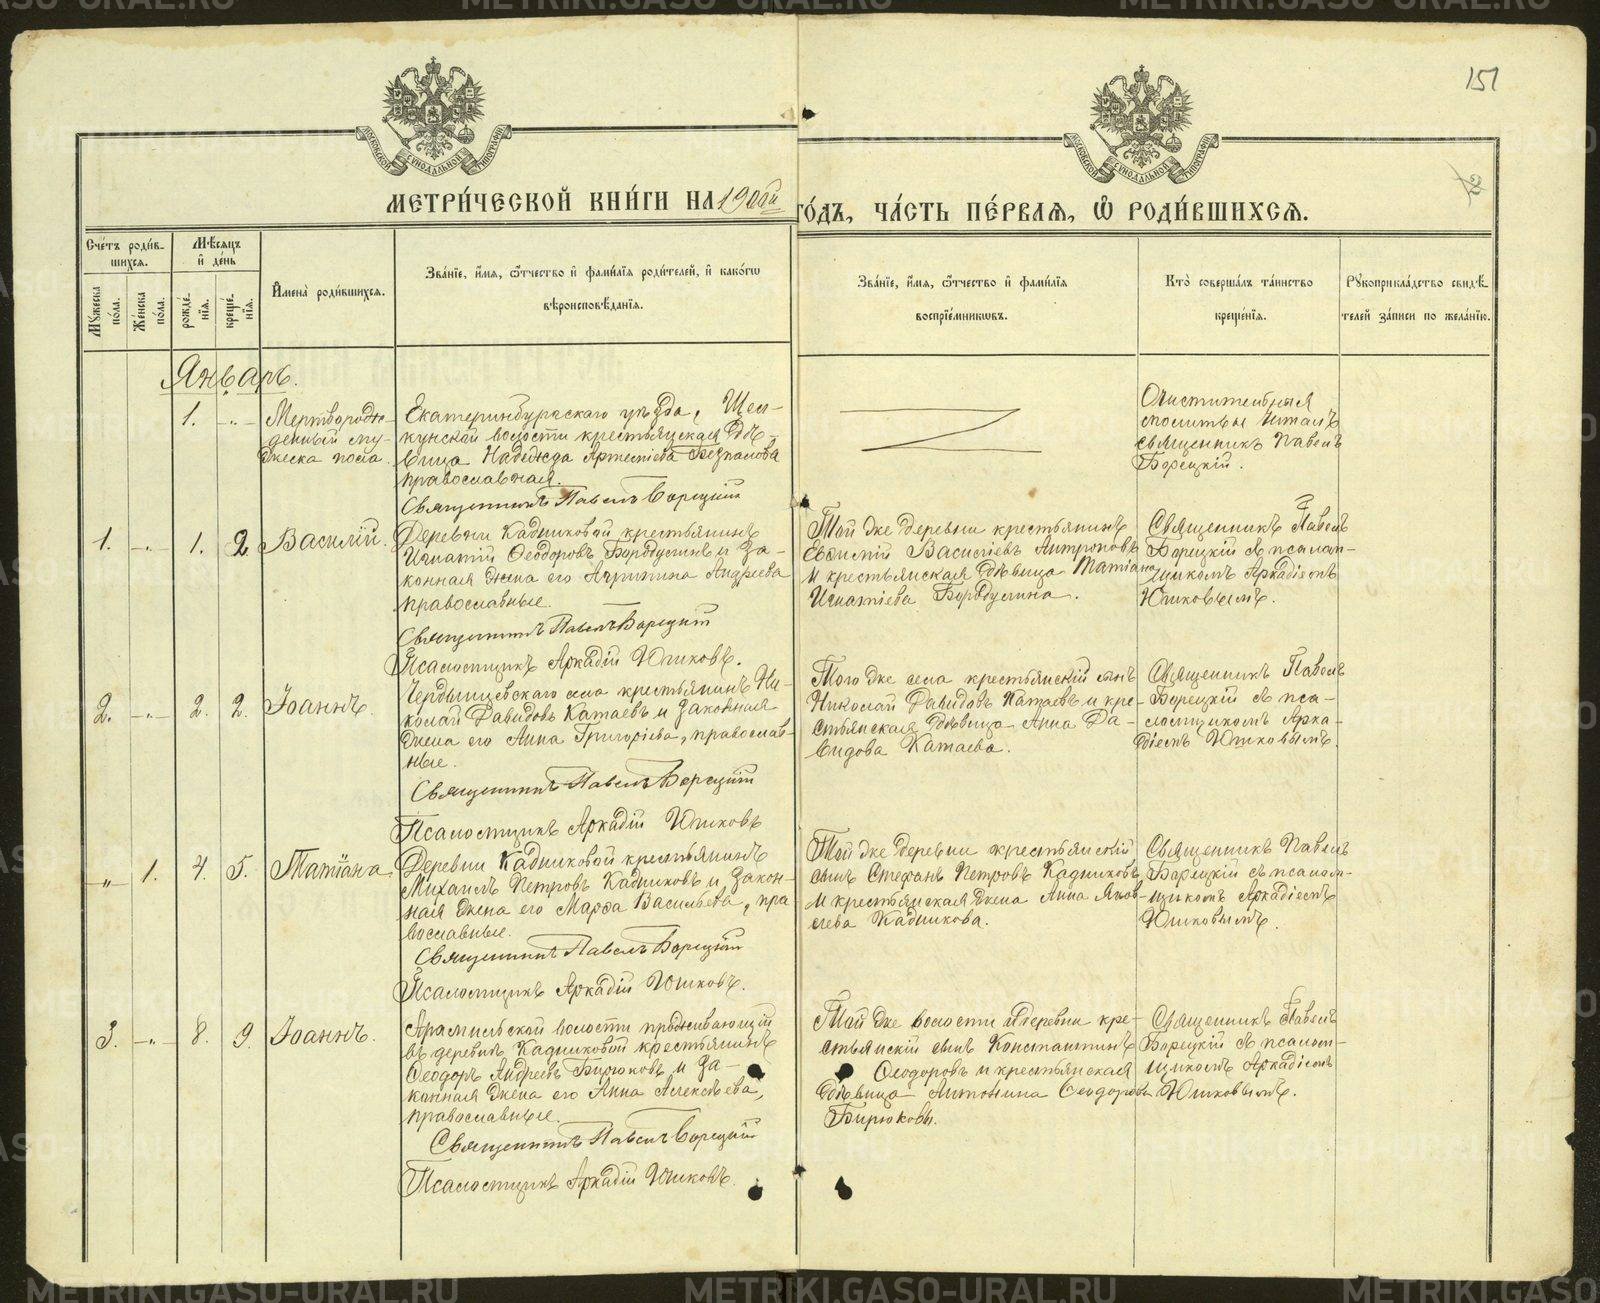 151
2
МЕТРИ́ЧЕСКОЙ КНИ́ГИ НА 1900й ГО́ДЪ, ЧА́СТЬ ПЕ́РВАЯ, Ѽ РОДИ́ВШИХСЯ.
Сче́тъ роди́в-
шихся.
Мѣ́сяцъ
и҆ де́нь
Му́жеска
по́ла.
Же́нска
по́ла.
рожде́-
нїя.
креще́-
нїя.
И҆мена̀ роди́вшихся.
Зва́нїе, и҆́мя, ѻ҆́тчество и҆ фами́лїя роди́телей, и҆ како́гѡ
вѣроисповѣ́данїя.
Зва́нїе, и҆́мя, ѻ҆́тчество и҆ фами́лїя
воспрїе́мникѡвъ.
Кто̀ соверша́лъ та́инство
креще́нїя.
Рукоприкла́дство свидѣ́-
телей за́писи по жела́нїю.
Январь.
1. -„-
Мертворож-
денный му-
жеска пола.
Екатеринбургскаго уѣзда, Щел-
кунской волости крестьянская дѣ-
вица Надежда Артемiева Безпалова
православная.
Священникъ Павелъ Борецкiй
Очистительныя
молитвы читалъ
священникъ Павелъ
Борецкiй.
1. -„- 1. 2. Василiй.
Деревни Кадниковой крестьянинъ
Игнатiй Ѳеодоровъ Бородулинъ и за-
конная жена его Агрипина Андреева
православные.
Священникъ Павелъ Борецкiй
Псаломщикъ Аркадiй Юшковъ.
Той же деревни крестьянинъ
Евѳимiй Василiевъ Антроповъ
и крестьянская дѣвица Татiана
Игнатiева Бородулина.
Священникъ Павелъ
Борецкiй съ псалом-
щикомъ Аркадiемъ
Юшковымъ.
2. -„- 2. 2. Iоаннъ.
Чердынцевскаго села крестьянинъ Ни-
колай Давидовъ Катаевъ и законная
жена его Анна Григорiева, православ-
ные.
Священникъ Павелъ Борецкiй
Псаломщикъ Аркадiй Юшковъ
Того же села крестьянскiй сынъ
Николай Давидовъ Катаевъ и кре-
стьянская дѣвица Анна Да-
видова Катаева.
Священникъ Павелъ
Борецкiй съ пса-
ломщикомъ Арка-
дiемъ Юшковымъ.
-„- 1. 4. 5. Татiана
Деревни Кадниковой крестьянинъ
Михаилъ Петровъ Кадниковъ и закон-
ная жена его Марѳа Васильева, пра
вославные.
Священникъ Павелъ Борецкiй
Псаломщикъ Аркадiй Юшковъ.
Той же деревни крестьянскiй
сынъ Стефанъ Петровъ Кадниковъ
и крестьянская жена Анна Яков-
лева Кадникова.
Священникъ Павелъ
Борецкiй съ псалом-
щикомъ Аркадiемъ
Юшковымъ.
3. -„- 8. 9. Iоаннъ.
Арамильской волости проживающiй
въ деревнѣ Кадниковой крестьянинъ
Ѳеодоръ Андреевъ Бирюковъ и за-
конная жена его Анна Алексѣева,
православные.
Священникъ Павелъ Борецкiй
Псаломщикъ Аркадiй Юшковъ.
Той же волости и деревни кре-
стьянскiй сынъ Константинъ
Ѳеодоровъ и крестьянская
дѣвица Антонина Ѳеодорова
Бирюковы.
Священникъ Павелъ
Борецкiй съ псалом-
щикомъ Аркадiемъ
Юшковымъ.
METRIKI.GASO-URAL.RU